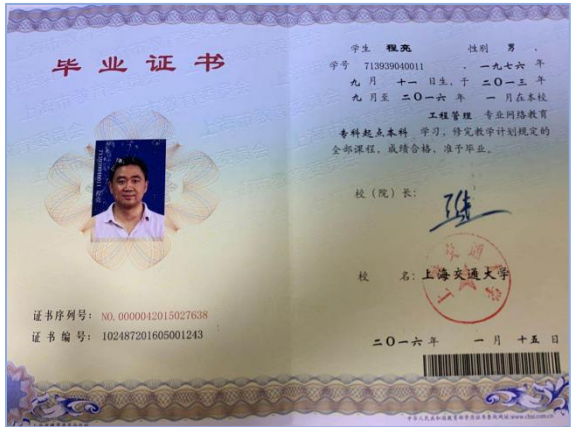 毕业证书
证书序列号: NO.0000042015027638
证书编号: 102487201605001243
学生 程亮 性别 男 ,
学号 713939040011 , 一九七六 年
九 月 十一 日生, 于 二〇一三 年
九 月至 二〇一六 年 一 月在本校
工程管理 专业网络教育
专科起点本科 学习, 修完教学计划规定的
全部课程, 成绩合格, 准予毕业。
校(院)长:
校 名: 上海交通大学
二〇一六 年 一 月 十五 日